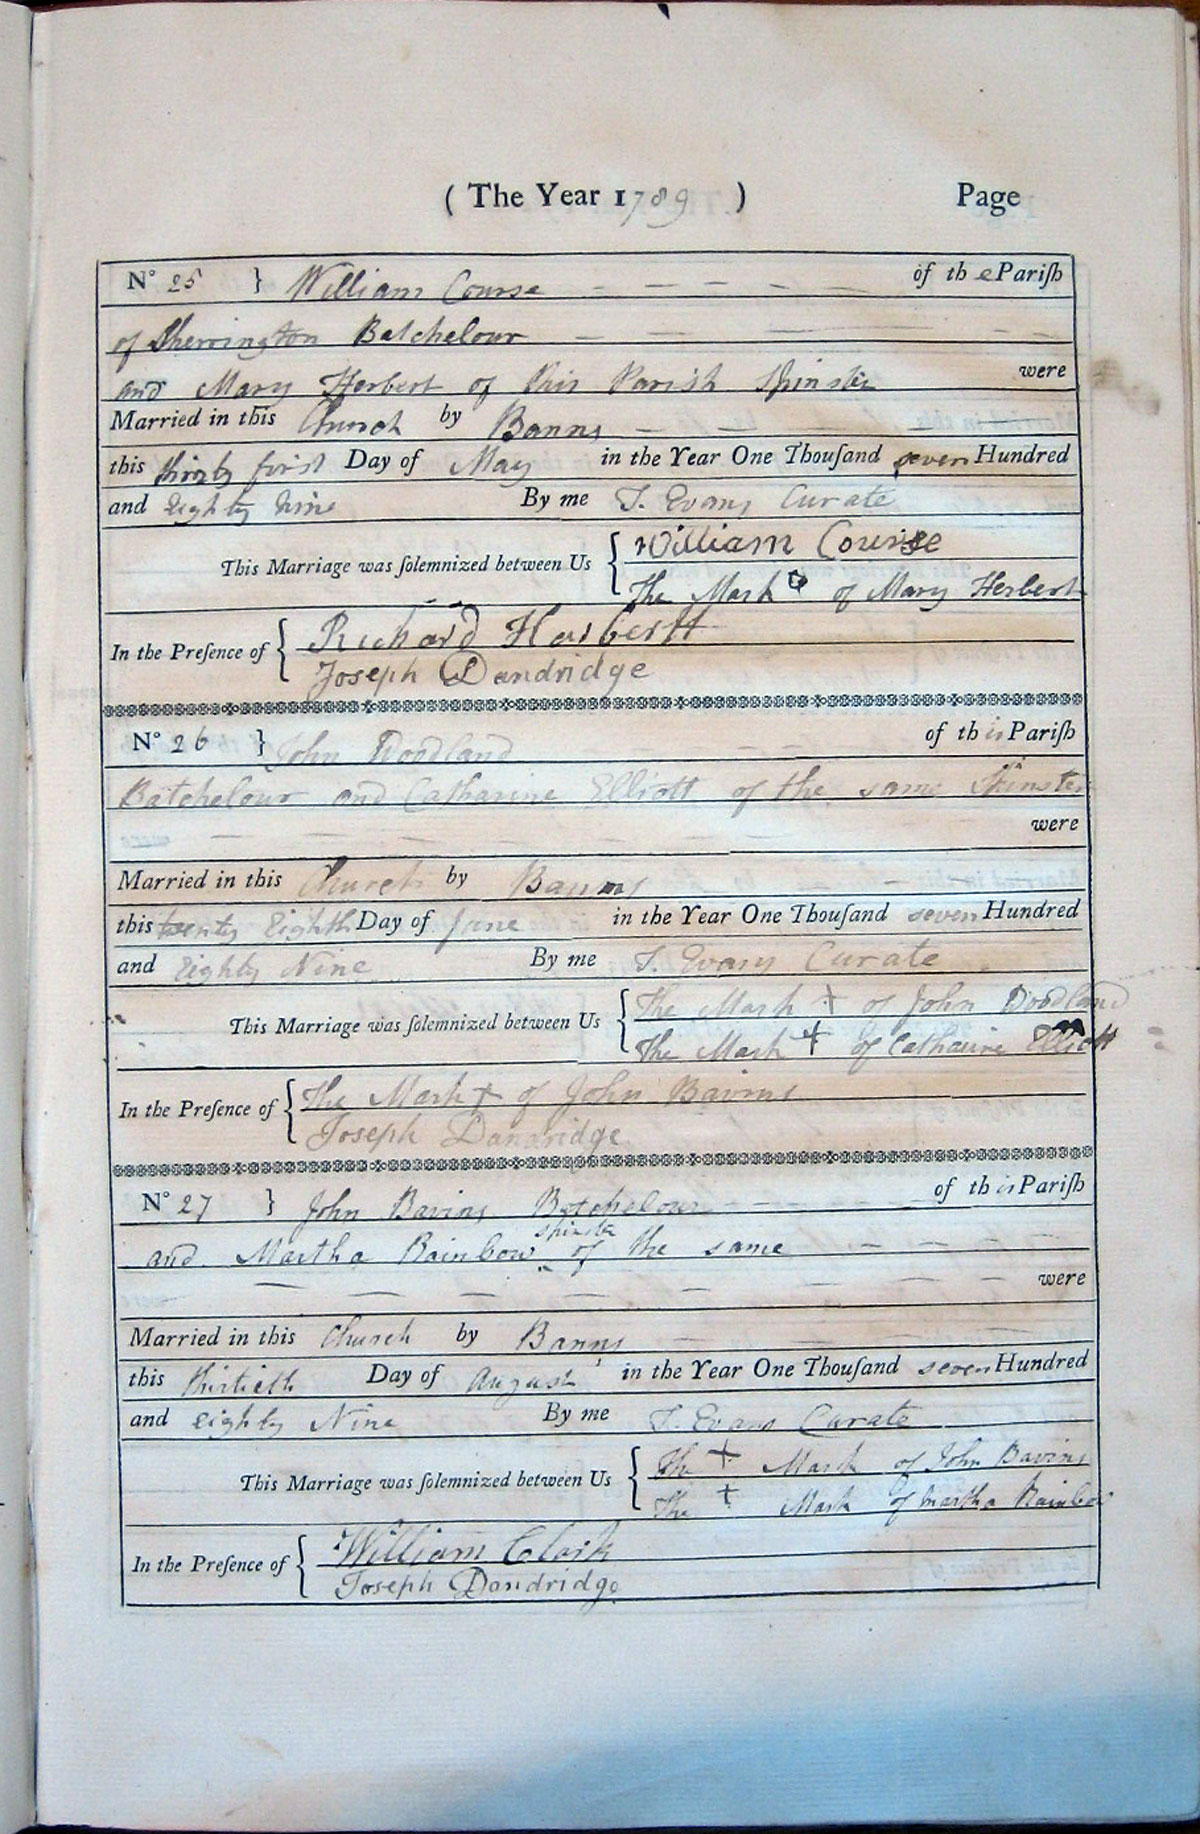 ( The Year 1789 ) Page
N° 25 } William Course of the Pariſh
of Sherrington Batchelour
and Mary Herbert of this Parish Spinster were
Married in this Church by Banns
this thirty first Day of May in the Year One Thouſand seven Hundred
and Eighty Nine By me T. Evans Curate
This Marriage was ſolemnized between Us { William Course
The Mark of Mary Herbert
In the Preſence of { Richard Harbertt
Joseph Dandridge
N° 26 } John Woodland of this Pariſh
Batchelour and Catharine Elliott of the same Spinster
were
Married in this Church by Banns
this twenty Eighth Day of June in the Year One Thouſand seven Hundred
and Eighty Nine By me T. Evans Curate
This Marriage was ſolemnized between Us { The Mark + of John Woodland
The Mark + of Catharine Elliott
In the Preſence of { The Mark + of John Bavins
Joseph Dandridge
N° 27 } John Bavins Batchelour of this Pariſh
and Martha Rainbow spinster of the same
were
Married in this Church by Banns
this thirtieth Day of August in the Year One Thouſand seven Hundred
and Eighty Nine By me T. Evans Curate
This Marriage was ſolemnized between Us { The + Mark of John Bavins
The + Mark of Martha Rainbow
In the Preſence of { William Clark
Joseph Dandridge